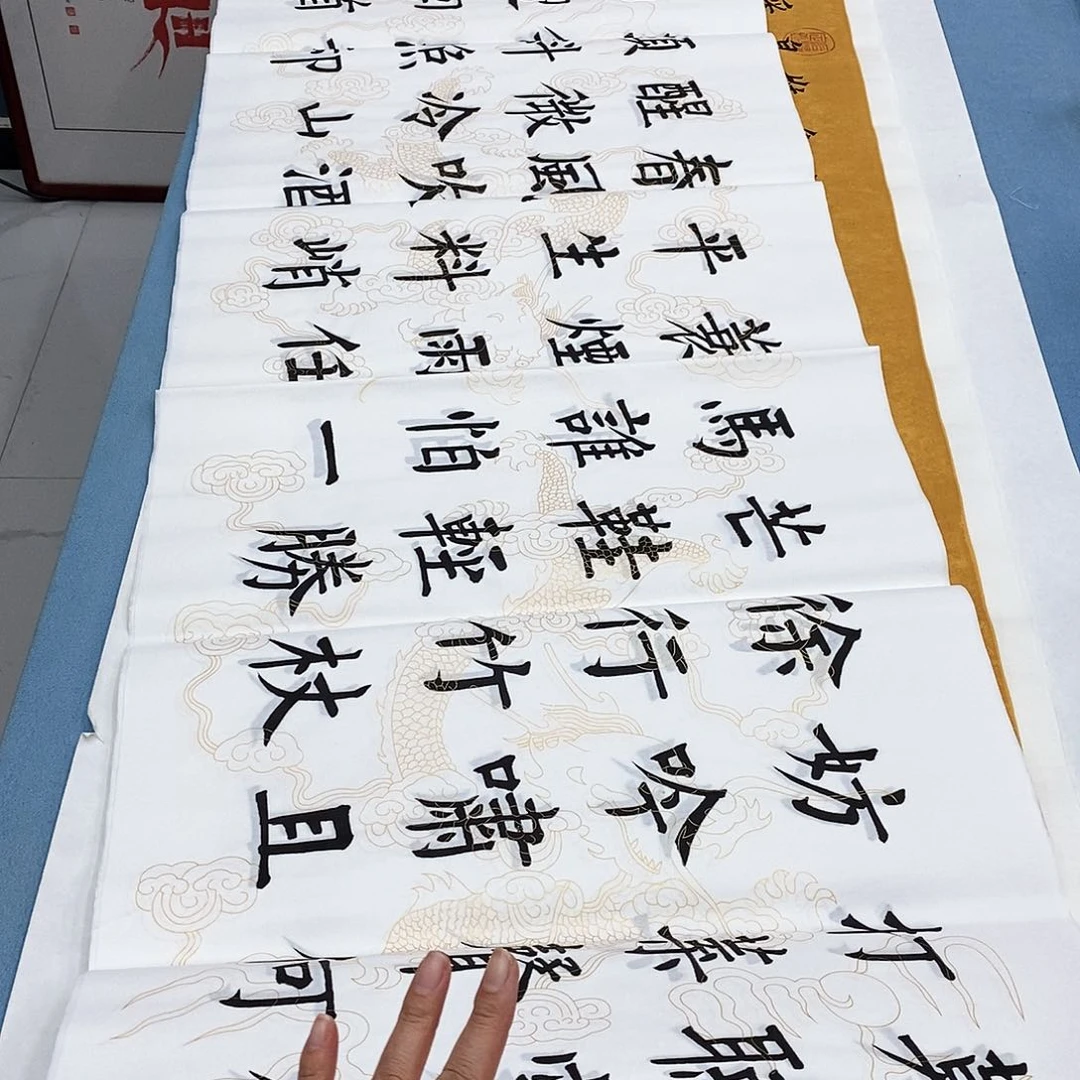 莫聽
打葉聲何
妨吟嘯且
徐行竹杖
芒鞋輕勝
馬誰怕一
蓑煙雨任
平生料峭
春風吹酒
醒微冷山
頭斜照卻